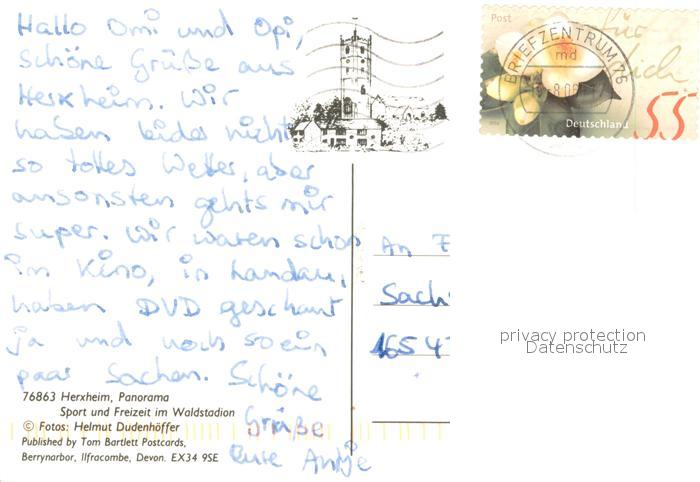 Hallo Omi und Opi,
schöne Grüße aus
Herxheim. Wir
haben leider nicht
so tolles Wetter, aber
ansonsten gehts mir
super. Wir waren schon
im Kino, in Landau,
haben DVD geschaut
ja und noch so ein
paar Sachen. Schöne
Grüße
Eure Antje
76863 Herxheim, Panorama
Sport und Freizeit im Waldstadion
© Fotos: Helmut Dudenhöffer
Published by Tom Bartlett Postcards,
Berrynarbor, Ilfracombe, Devon. EX34 9SE
Post
BRIEFZENTRUM 76
md
Für
Dich
Deutschland
55
An F
Sach
privacy protection
Datenschutz